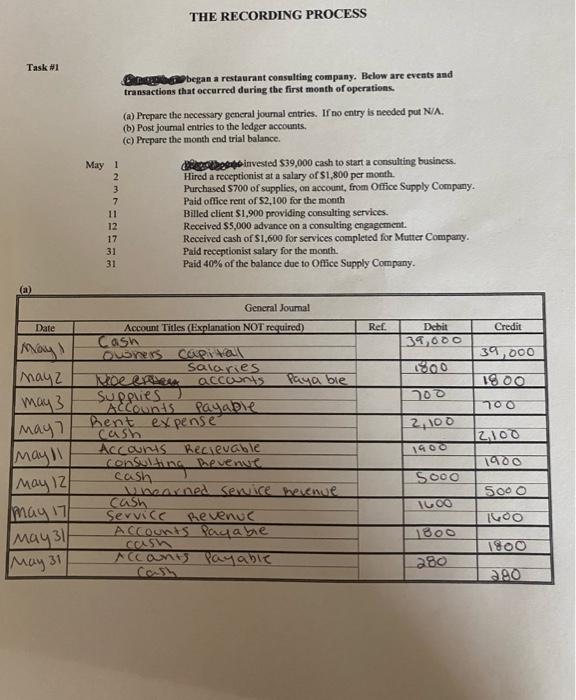 THE RECORDING PROCESS
Task #1
began a restaurant consulting company. Below are events and
transactions that occurred during the first month of operations.
(a) Prepare the necessary general journal entries. If no entry is needed put N/A.
(b) Post journal entries to the ledger accounts.
(c) Prepare the month end trial balance.
May 1 invested $39,000 cash to start a consulting business.
2 Hired a receptionist at a salary of $1,800 per month.
3 Purchased $700 of supplies, on account, from Office Supply Company.
7 Paid office rent of $2,100 for the month
11 Billed client $1,900 providing consulting services.
12 Received $5,000 advance on a consulting engagement.
17 Received cash of $1,600 for services completed for Mutter Company.
31 Paid receptionist salary for the month.
31 Paid 40% of the balance due to Office Supply Company.
(a)
General Journal
Date Account Titles (Explanation NOT required) Ref. Debit Credit
May 1 Cash 39,000
owners capital 39,000
May 2 Salaries 1800
accounts Payable 1800
May 3 Supplies 700
Accounts Payable 700
May 7 Rent expense 2,100
cash 2,100
May 11 Accounts Recievable 1900
consulting Revenue 1900
May 12 cash 5000
Unearned service revenue 5000
May 17 cash 1600
Service Revenue 1600
May 31 Accounts Payable 1800
cash 1800
May 31 Accounts Payable 280
Cash 280